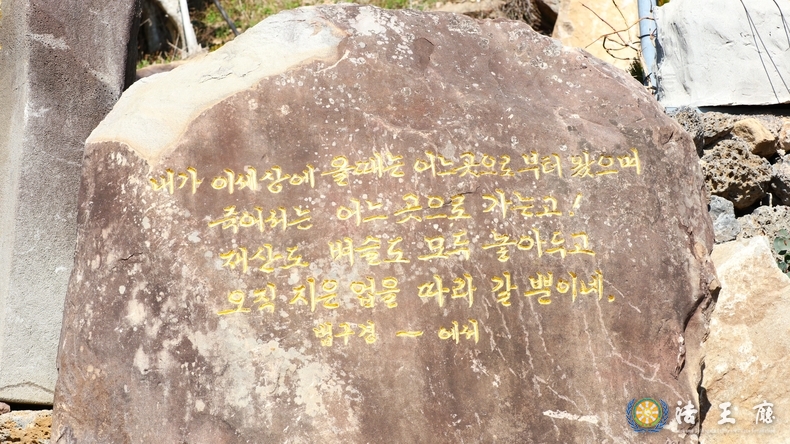 내가 이세상에 올때는 어느곳으로부터 왔으며
죽어서는 어느 곳으로 가는고!
재산도 벼슬도 모두 놓아두고
오직 지은 업을 따라 갈 뿐이네.
법구경 – 에서
法王廳